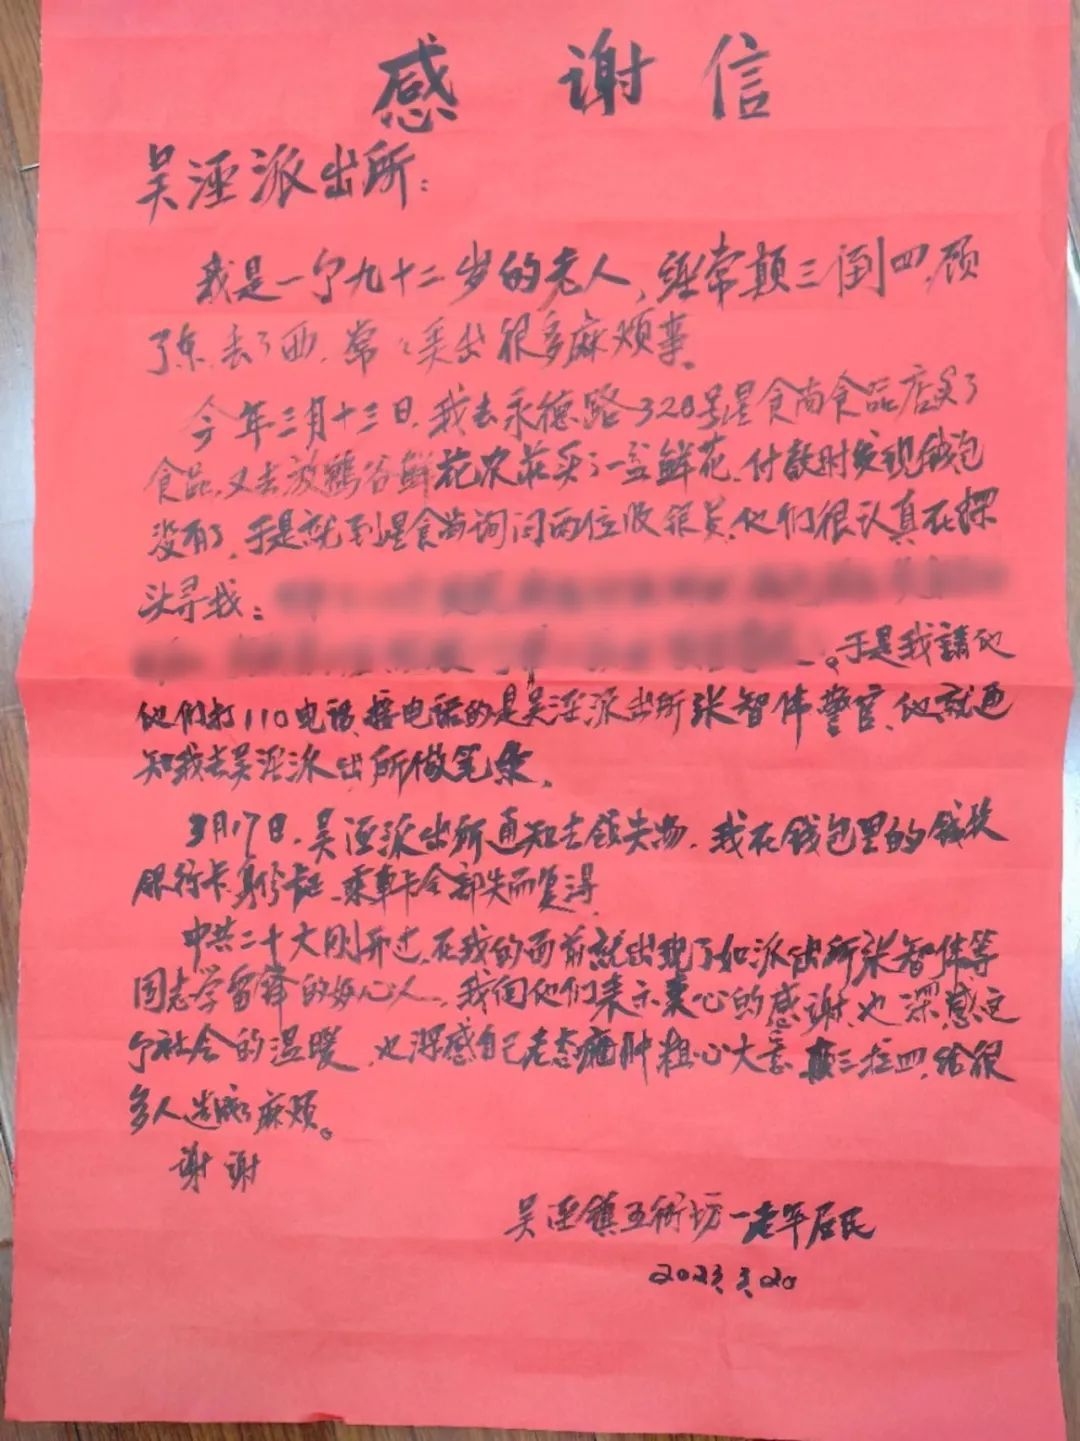 感谢信
吴泾派出所：
我是一个九十二岁的老人，经常颠三倒四，顾
了东丢了西，常々弄出很多麻烦事。
今年三月十三日，我去永德路320号星食尚食品店买了
食品，又去放鹤谷鲜花农庄买了一盆鲜花，付款时发现钱包
没有了，于是就到星食尚询问两位收银员，他们很认真在探
头寻找：
于是我請他
他们打110电话，接电话的是吴泾派出所张智伟警官，他就通
知我去吴泾派出所做笔录。
3月17日，吴泾派出所通知去领失物，我在钱包里的钱款
银行卡、身份证、乘車卡全部失而复得，
中共二十大刚开过，在我的面前就出现了如派出所张智伟等
同志学雷锋的好心人，我向他们表示衷心的感谢，也深感这
个社会的温暖，也深感自己老态龍肿粗心大意颠三拉四，给很
多人造成了麻烦。
谢谢
吴泾镇五街坊一老年居民
2023.3.20